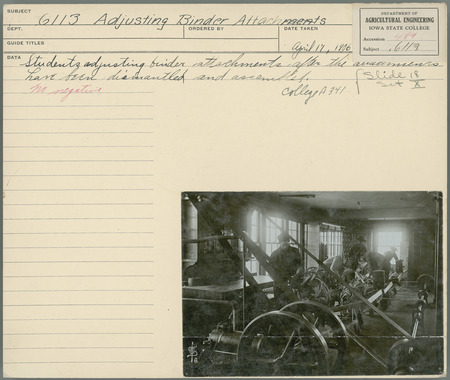 SUBJECT
6113 Adjusting Binder Attachments
DEPT.
ORDERED BY
DATE TAKEN
GUIDE TITLES
April 17, 1906
DATA
Students adjusting binder attachments after the
have been dismantled and assembled.
No negative
College A 341
Slide 18
Set X
DEPARTMENT OF
AGRICULTURAL ENGINEERING
IOWA STATE COLLEGE
Accession
Subject 6113